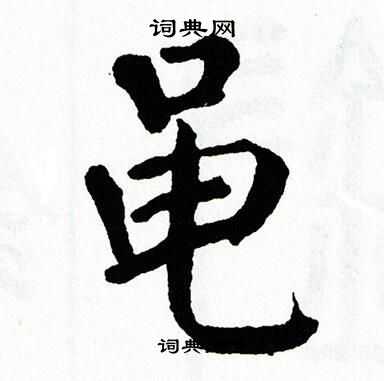 词典网
黾
词典